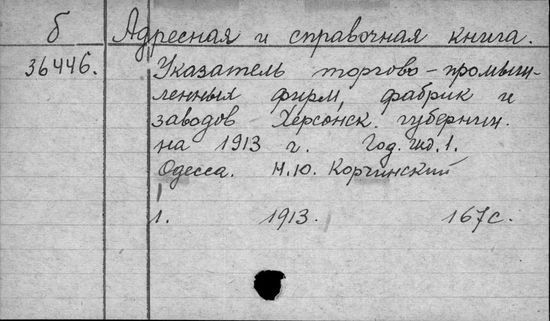 б Адресная и справочная книга.
36446. Указатель торгово-промыш-
ленных фирм, фабрик и
заводов Херсонск. губернии.
на 1913 г. Год. изд. 1.
Одесса. Н.Ю. Корчинский
1. 1913. 167с.